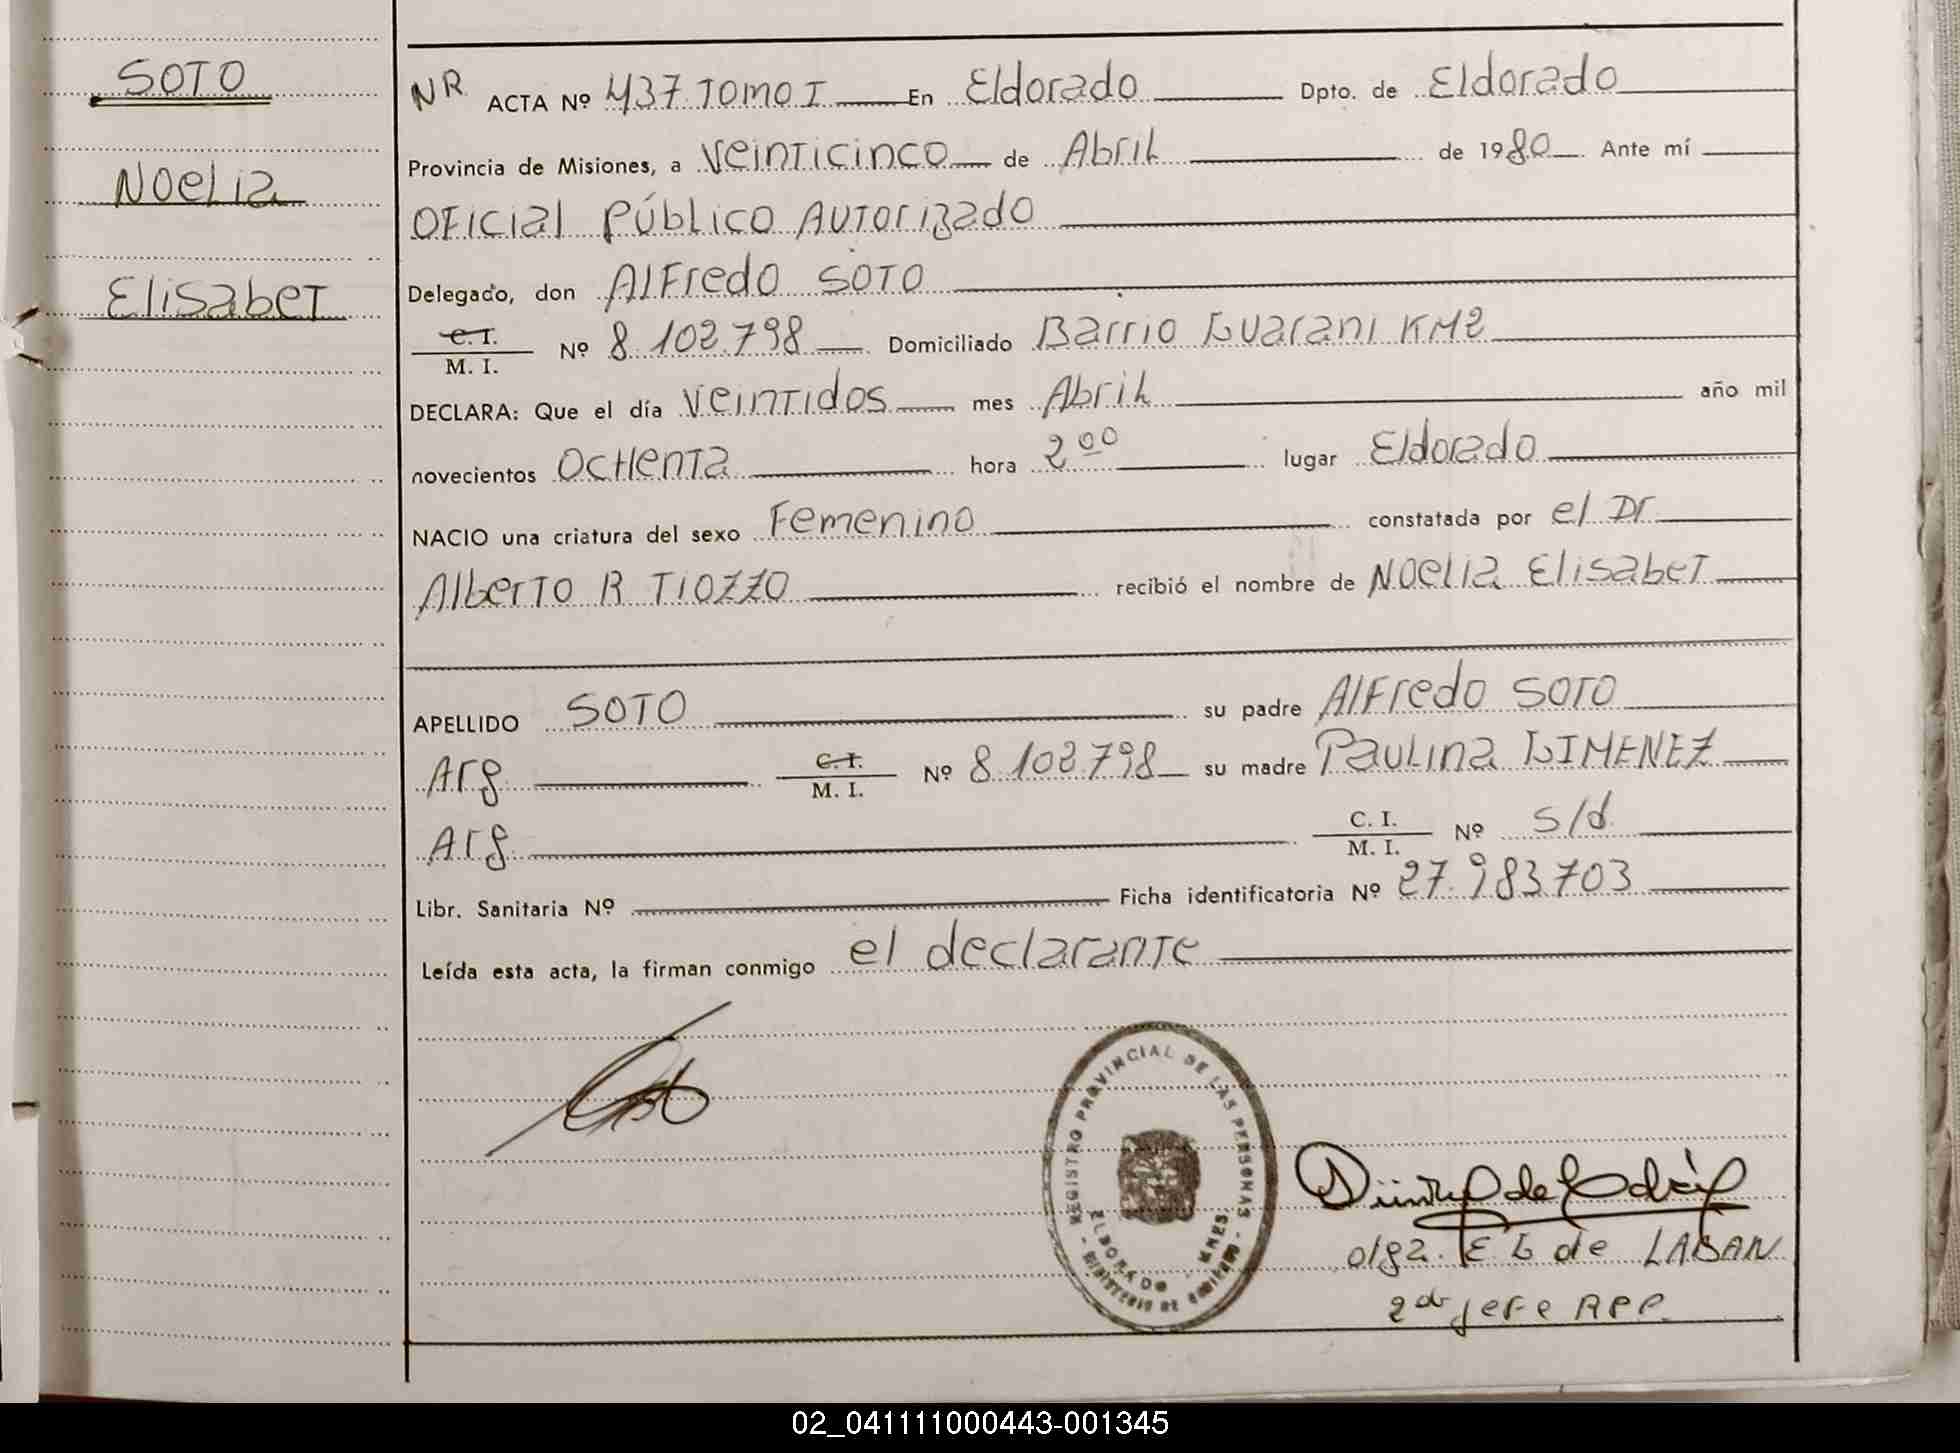 SOTO
NOELIA
ElisabeT
NR ACTA Nº 437 TOMO I En Eldorado Dpto. de Eldorado
Provincia de Misiones, a veinticinco de Abril de 1980 Ante mí
OFicial Público AUTorizado
Delegado, don AlFredo SOTO
C. I. / M. I. Nº 8.102.798 Domiciliado Barrio Guarani KM2
DECLARA: Que el día veintidos mes Abril año mil
novecientos OcHenTa hora 2 00 lugar Eldorado
NACIO una criatura del sexo Femenino constatada por el Dr
AlberTO R TIOZZO recibió el nombre de NOELIA ElisabeT
APELLIDO SOTO su padre AlFredo SOTO
Arg C. I. / M. I. Nº 8.102.798 su madre Paulina GIMENEZ
Arg C. I. / M. I. Nº s/d
Libr. Sanitaria Nº Ficha identificatoria Nº 27.983.703
Leída esta acta, la firman conmigo el declaranTe
REGISTRO PROVINCIAL DE LAS PERSONAS
ELDORADO - MNES
MINISTERIO DE GOBIERNO
Olga. E G de LABAN
2do jefe RPP
02_041111000443-001345